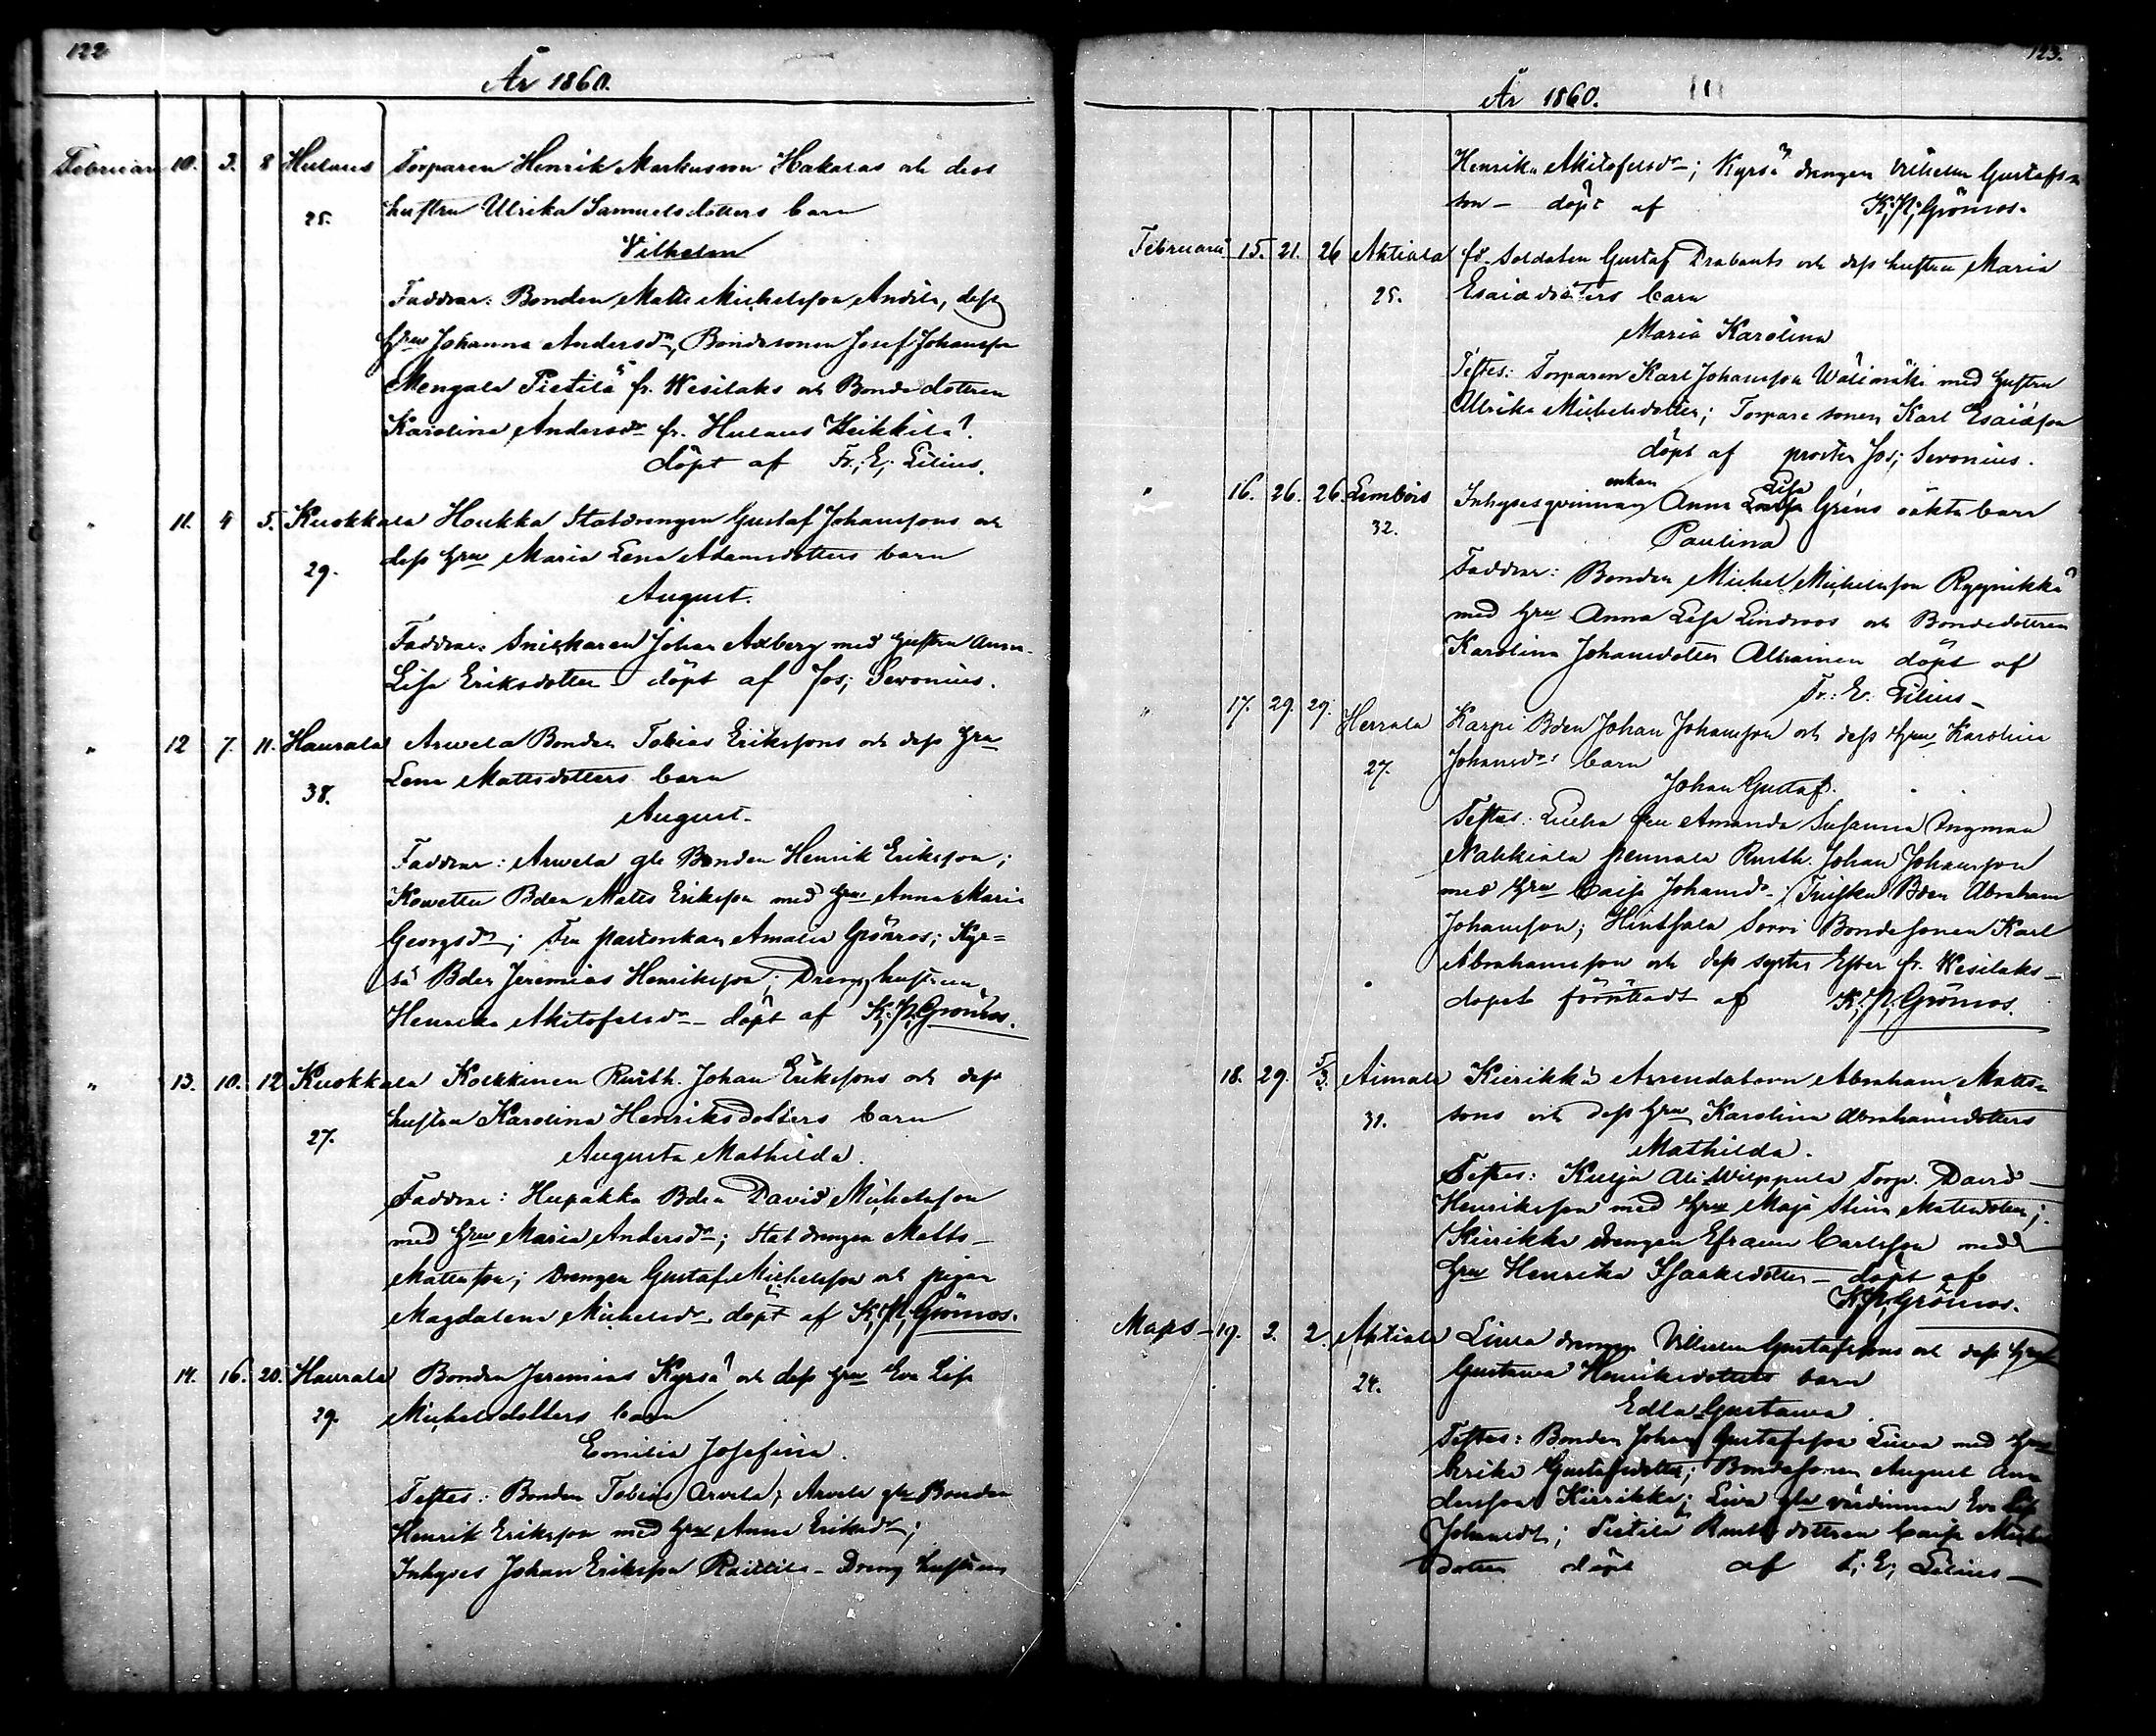 122
År 1860.
Februari 10. 3. 8 Hulaus Torparen Henrik Markusson Hakalas och dess
25. hustru Ulrika Samuelsdotters barn
Vilhelm
Faddrar: Bonden Matts Michelsson Andila, dess
Hru Johanna Andersdr, Bondesonen Josef Johansson
Mengala Pietilä fr. Wesilaks och Bondedottren
Karolina Andersdr fr. Hulaus Heikkilä.
döpt af Fr; E; Lilius.
" 11. 4 5. Kuokkala Houkka Statdrengen Gustaf Johanssons och
29. dess Hru Maria Lena Adamsdotters barn
August.
Faddrar. Snickaren Johan Axberg med hustru Anna
Lisa Eriksdotter döpt af Jos; Sevonius.
" 12 7. 11. Haurala Arwela Bonden Tobias Erikssons och dess Hru
38. Lena Mattsdotters barn
August.
Faddrar: Arwela gle Bonden Henrik Eriksson;
Kowettu Bden Matts Eriksson med Hru Anna Maria
Georgsdr; Fru pastorskan Amalia Grönroos; Kyr=
sä Bden Jeremias Henriksson; Drenghustrun
Henrika Akitofelsdr döpt af K; N; Grönroos.
" 13. 10. 12 Kuokkala Kolkkinen Rusth. Johan Erikssons och dess
27. hustru Karolina Henriksdotters barn
Augusta Mathilda.
Faddrar: Hupakka Bden David Michelsson
med Hru Maria Andersdr; Statdrengen Matts
Mattsson; Drengen Gustaf Michelsson och pigan
Magdalena Michelsdr döpt af K; N; Grönroos.
14. 16. 20. Haurala Bonden Jeremias Kyrsä och dess Hru Eva Lisa
29. Michelsdotters barn
Emilia Josefina.
Testes: Bonden Tobias Arvela; Arvela gle Bonden
Henrik Eriksson med Hru Anna Eriksdr;
Inhyses Johan Eriksson Raittila - Dreng hustrun
123.
År 1860.
Henrika Akitofelsdr; Kyrsä drengen Vilhelm Gustafs-
son döpt af K; N; Grönroos.
Februari 15. 21. 26 Ahtiala fd. Soldaten Gustaf Drabants och dess hustru Maria
25. Esaiædotters barn
Maria Karolina
Testes: Torparen Karl Johansson Wälimäki med hustru
Ulrika Michelsdotter; Torparesonen Karl Esaiæson
döpt af prosten Jos; Sevonius.
" 16. 26. 26. Lembois Inhyseqvinnan enkan Anna Lisa Gröns oäkta barn
32. Paulina
Faddrar: Bonden Michel Michelsson Ryynikkä
med Hru Anna Lisa Lindroos och Bondedottren
Karolina Johansdotter Alhainen döpt af
Fr: E. Lilius
" 17. 29. 29. Herrala Karpi Bden Johan Johansson och dess Hru Karolina
27. Johansdrs barn
Johan Gustaf.
Testes: Fru Amanda Susanna Ingman
Nahkiala pennala Rusth. Johan Johansson
med Hru Caisa Johansdr; Bden Abraham
Johansson; Hintsala Sorri Bondesonen Karl
Abrahamsson och dess syster Ester fr. Wesilaks
dopet förrättadt af K; N; Grönroos.
18. 29. 5/3. Aimala Kierikka Arrendatorn Abraham Matts-
31. sons och dess Hru Karolina Abrahamsdotters
Mathilda.
Testes: Kulju Ali-Wilppula Torp. David
Henriksson med Hru Maja Stina Mattsdotter;
Kierikka drengen Efraim Carlsson med
Hru Henrika Isaaksdotter döpt af
K; N; Grönroos.
Mars 19. 2. 2. Ahtiala Liuva drengen Vilhelm Gustafssons och dess Hru
24. Gustava Henriksdotters barn
Edla Gustava
Testes: Bonden Johan Gustafsson Liuva med Hru
Ulrika Gustafsdotter; Bondesonen August An-
dersson Kierikka; Liuva gla värdinnan Eva Lisa
Johansdr; Pietilä Rusth dottren Caisa Michels
dotter döpt af F; E; Lilius